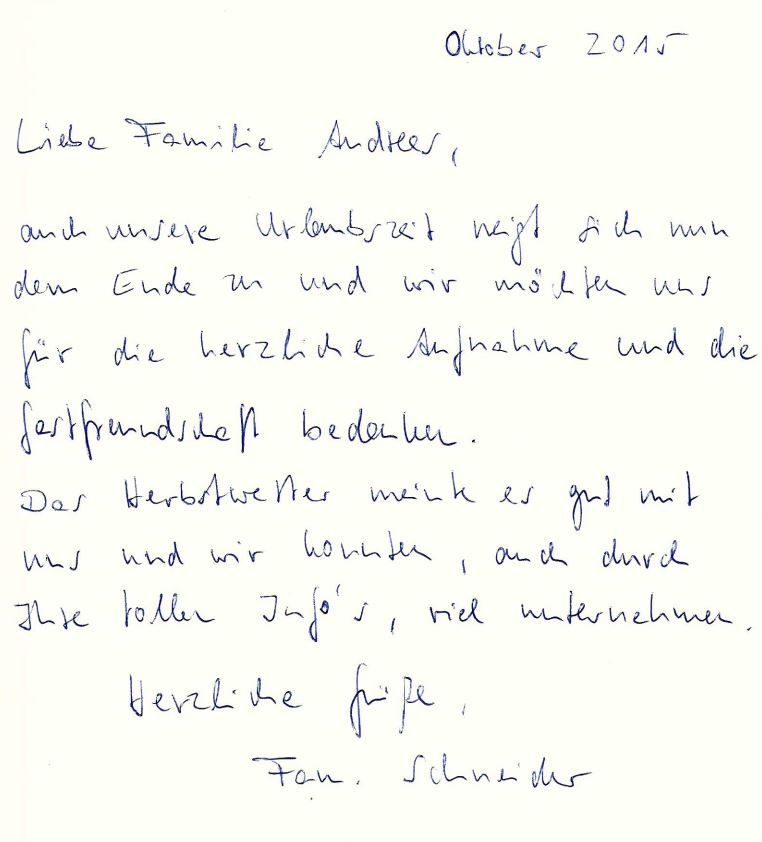 Oktober 2015
Liebe Familie Andrees,
auch unsere Urlaubszeit neigt sich nun
dem Ende zu und wir möchten uns
für die herzliche Aufnahme und die
Gastfreundschaft bedanken.
Das Herbstwetter meinte es gut mit
uns und wir konnten, auch durch
Ihre tollen Info's, viel unternehmen.
Herzliche Grüße,
Fam. Schneider